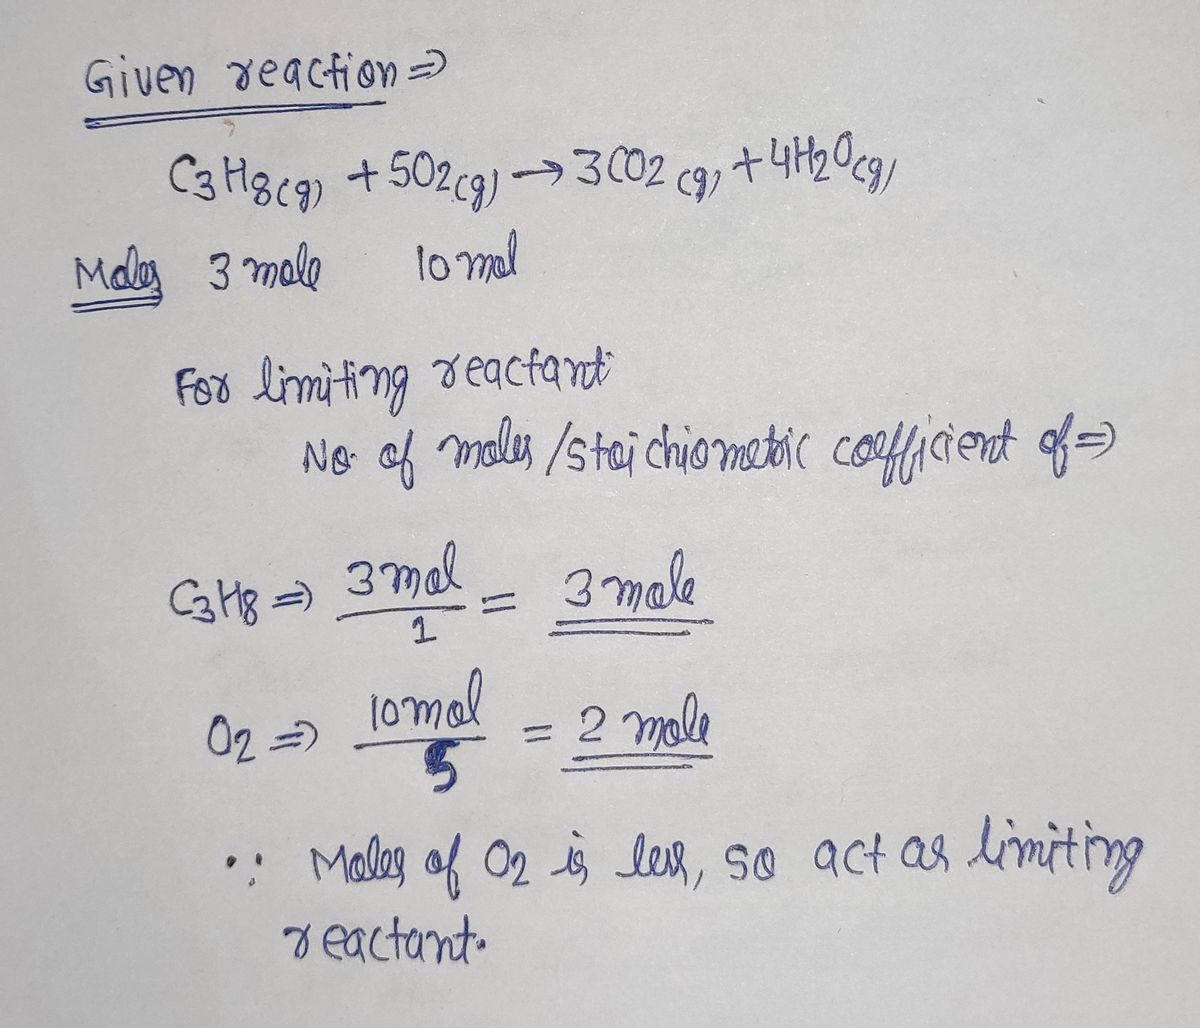 Given reaction ⇒
C3H8(g) + 5O2(g) → 3CO2(g) + 4H2O(g)
Moles 3 mole 10 mol
For limiting reactant
No. of moles / stoichiometric coefficient of ⇒
C3H8 ⇒ 3 mol / 1 = 3 mole
O2 ⇒ 10 mol / 5 = 2 mole
∵ Moles of O2 is less, so act as limiting
reactant.